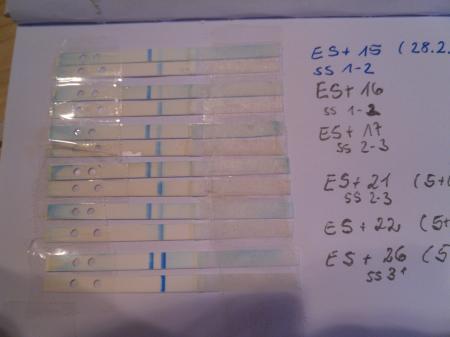 ES+ 15 (28.2.
SS 1-2
ES+ 16
SS 1-2
ES+ 17
SS 2-3
ES+ 21 (5+
SS 2-3
ES+ 22 (5+
ES+ 26 (5
SS 3+